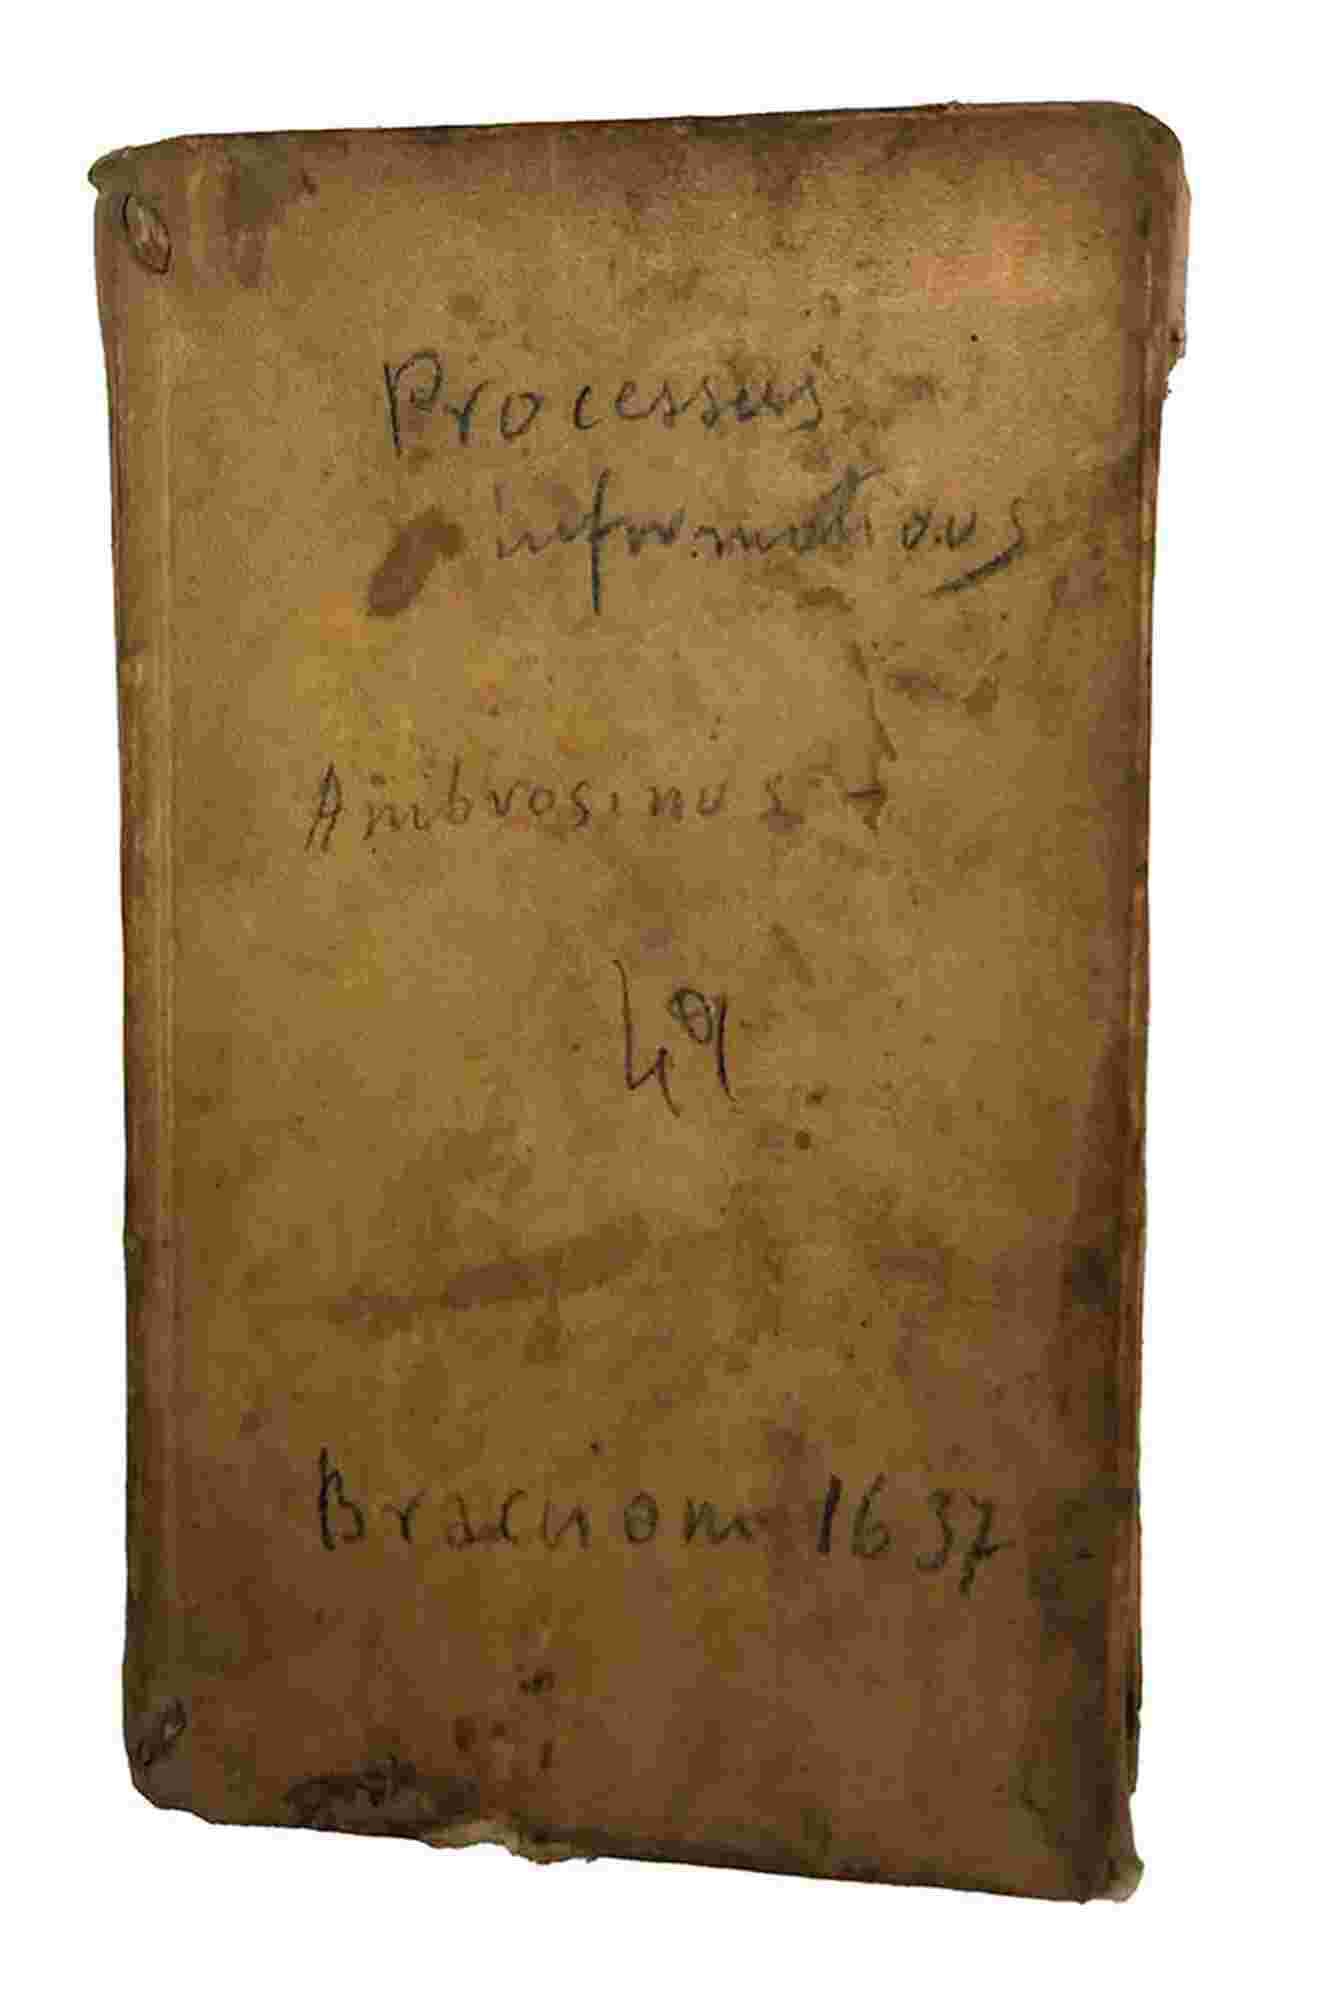 Processus
informativus
Ambrosinus
49
Bracnom 1637